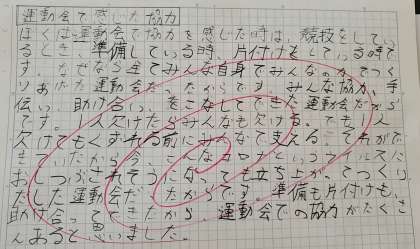 運動会で感じた協力
ぼくは運動会で協力を感じた時は、競技をしてい
るとき、準備している時、片付けをしている時で
す。なぜなら全てみんな自身でみんなの力でつく
りあげた運動会だったからです。みんな協力、手
伝い、助け合い、をこなしてできた運動会だから
です。1人欠けたらみんなも欠ける。でも1人
欠けてもくずれる前にみんなで支える。それがで
きていたから今、こんなコロナというウイルスに
おしつぶされそうになっても立ち上がってつくり
だした運動会だったからです。準備も片付けも、
助け合ってできたから、運動会での協力がたくさ
んあると思いました。